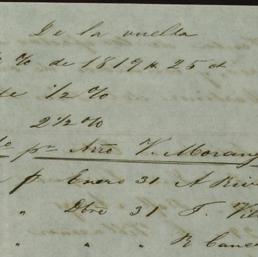 De la vuelta
% de 1819 25 ct
1/2 %
2 1/2 %
pr Arto V. Morany
p. Enero 31 A Riv
" Dbre 31 F. Vil
" " " R Canc